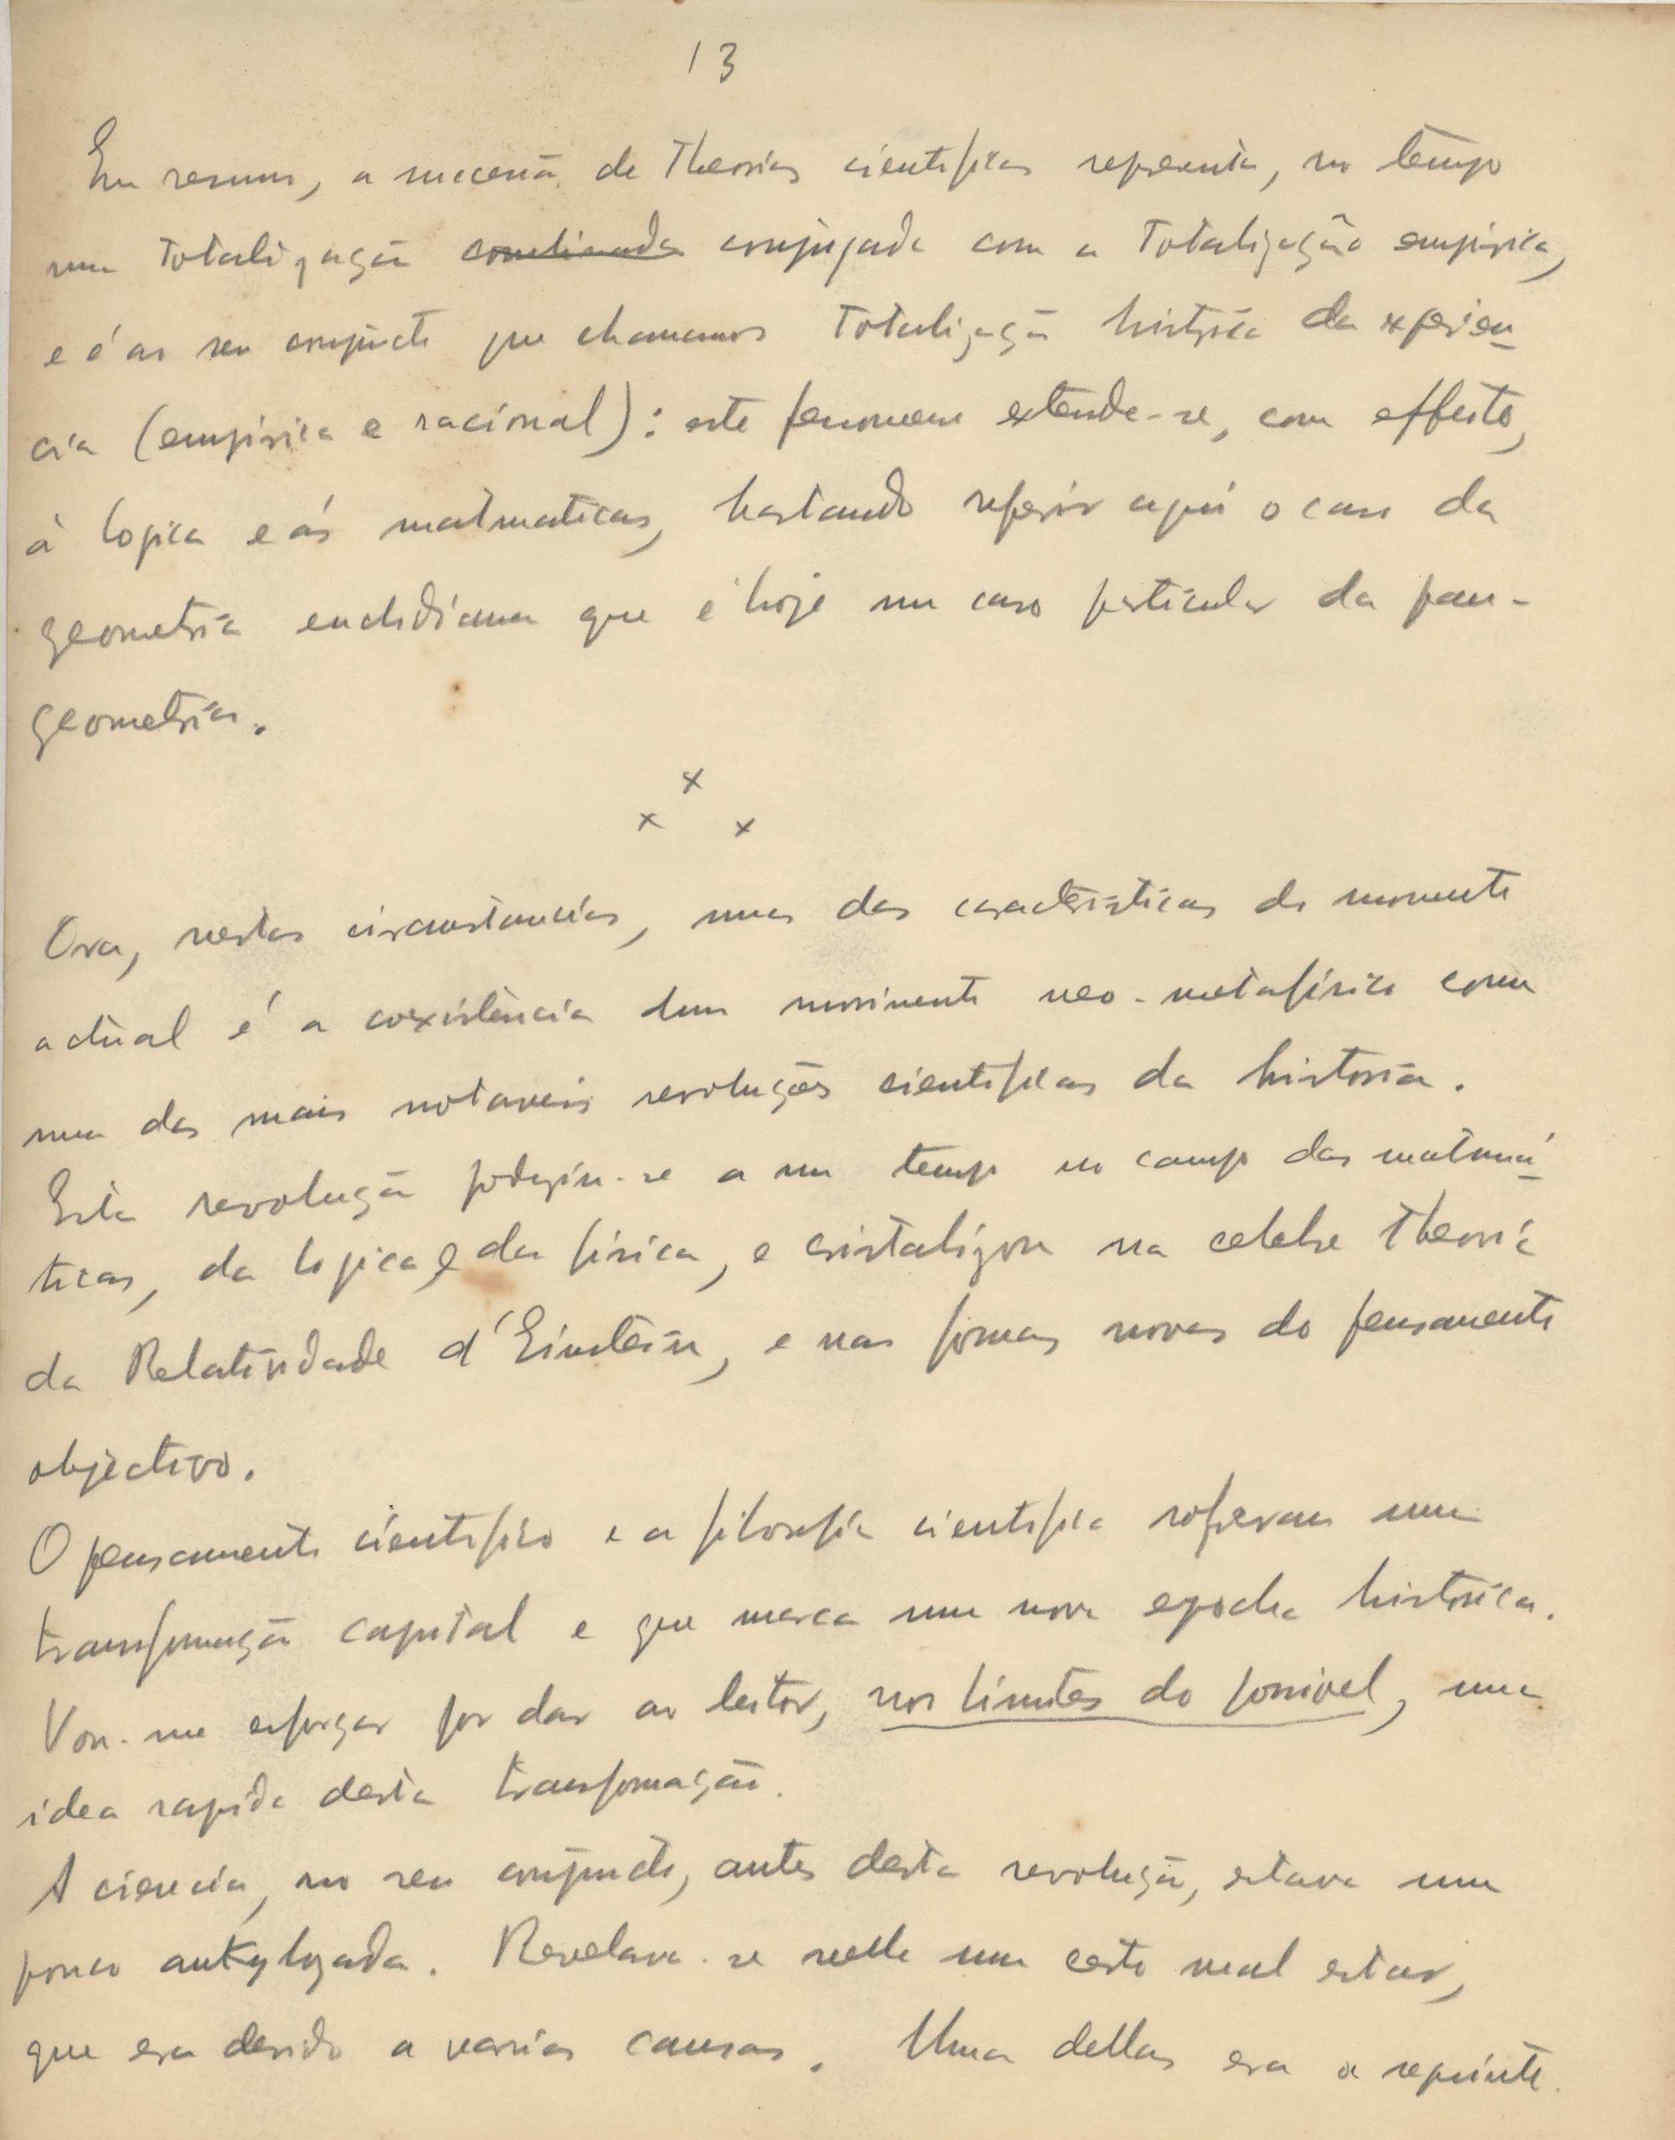 13
Em resumo, a sucessão de Theorias cientificas representa, no tempo
uma Totalização combinada conjugada com a Totalização empirica,
e é ao seu conjuncto que chamamos Totalização historica da experien-
cia (empirica e racional): este fenomeno extende-se, com effeito,
á logica e ás matematicas, bastando referir aqui o caso da
geometria euclidiana que é hoje um caso particular da pan-
geometria.
x
x x
Ora, nestas circunstancias, uma das caracteristicas do momento
actual é a coexistencia dum movimento neo-metafisico com
uma das mais notaveis revoluções cientificas da historia.
Esta revolução produziu-se a um tempo no campo das matemá-
ticas, da logica e da fisica, e cristalizou na celebre Theoria
da Relatividade d'Einstein, e nas formas novas do pensamento
objectivo.
O pensamento cientifico e a filosofia cientifica sofreram uma
transformação capital e que marca uma nova epocha historica.
Vou-me esforçar por dar ao leitor, nos limites do possivel, uma
idea rapida desta transformação.
A ciencia, no seu conjuncto, antes desta revolução, estava um
pouco ankylozada. Revelava-se nella um certo mal estar,
que era devido a varias causas. Uma dellas era a seguinte.